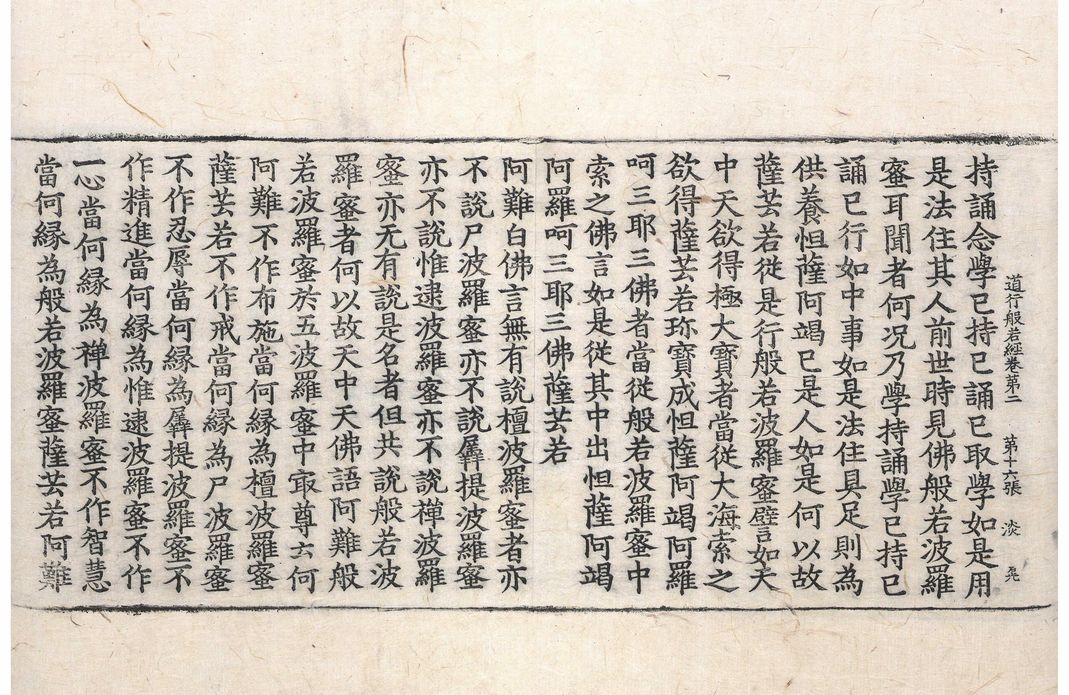 道行般若經卷第二 第十六張 淡
持誦念學已持已誦已取學如是用
是法住其人前世時見佛般若波羅
蜜耳聞者何況乃學持誦學已持已
誦已行如中事如是法住具足則為
供養怛薩阿竭已是人如是何以故
薩芸若從是行般若波羅蜜譬言如天
中天欲得極大寶者當從大海索之
欲得薩芸若珎寶成怛薩阿竭阿羅
呵三耶三佛者當從般若波羅蜜中
索之佛言如是從其中出怛薩阿竭
阿羅呵三耶三佛薩芸若
阿難白佛言無有說檀波羅蜜者亦
不說尸波羅蜜亦不說羼提波羅蜜
亦不說惟逮波羅蜜亦不說禪波羅
蜜亦无有說是名者但共說般若波
羅蜜者何以故天中天佛語阿難般
若波羅蜜於五波羅蜜中㝡尊云何
阿難不作布施當何緣為檀波羅蜜
薩芸若不作戒當何緣為尸波羅蜜
不作忍辱當何緣為羼提波羅蜜不
作精進當何緣為惟逮波羅蜜不作
一心當何緣為禪波羅蜜不作智慧
當何緣為般若波羅蜜薩芸若阿難